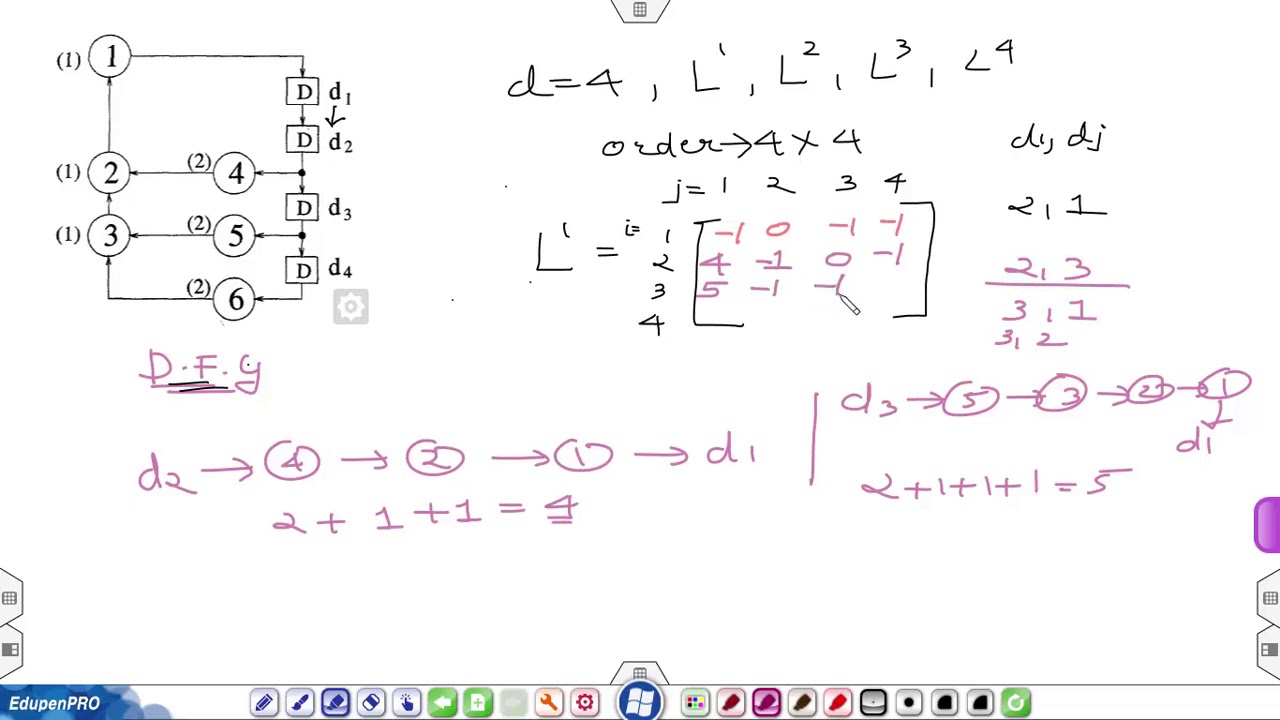 (1) 1
D d1
D d2
(1) 2 (2) 4
D d3
(1) 3 (2) 5
D d4
(2) 6
D.F.G
d=4, L^1, L^2, L^3, L^4
order→4×4
di, dj
j= 1 2 3 4
2, 1
L^1 = i= 1 -1 0 -1 -1
2 4 -1 0 -1
2, 3
3 5 -1 -1
3, 1
4
3, 2
d2 → 4 → 2 → 1 → d1
2 + 1 + 1 = 4
d3 → 5 → 3 → 2 → 1
d1
2+1+1+1=5
EdupenPRO